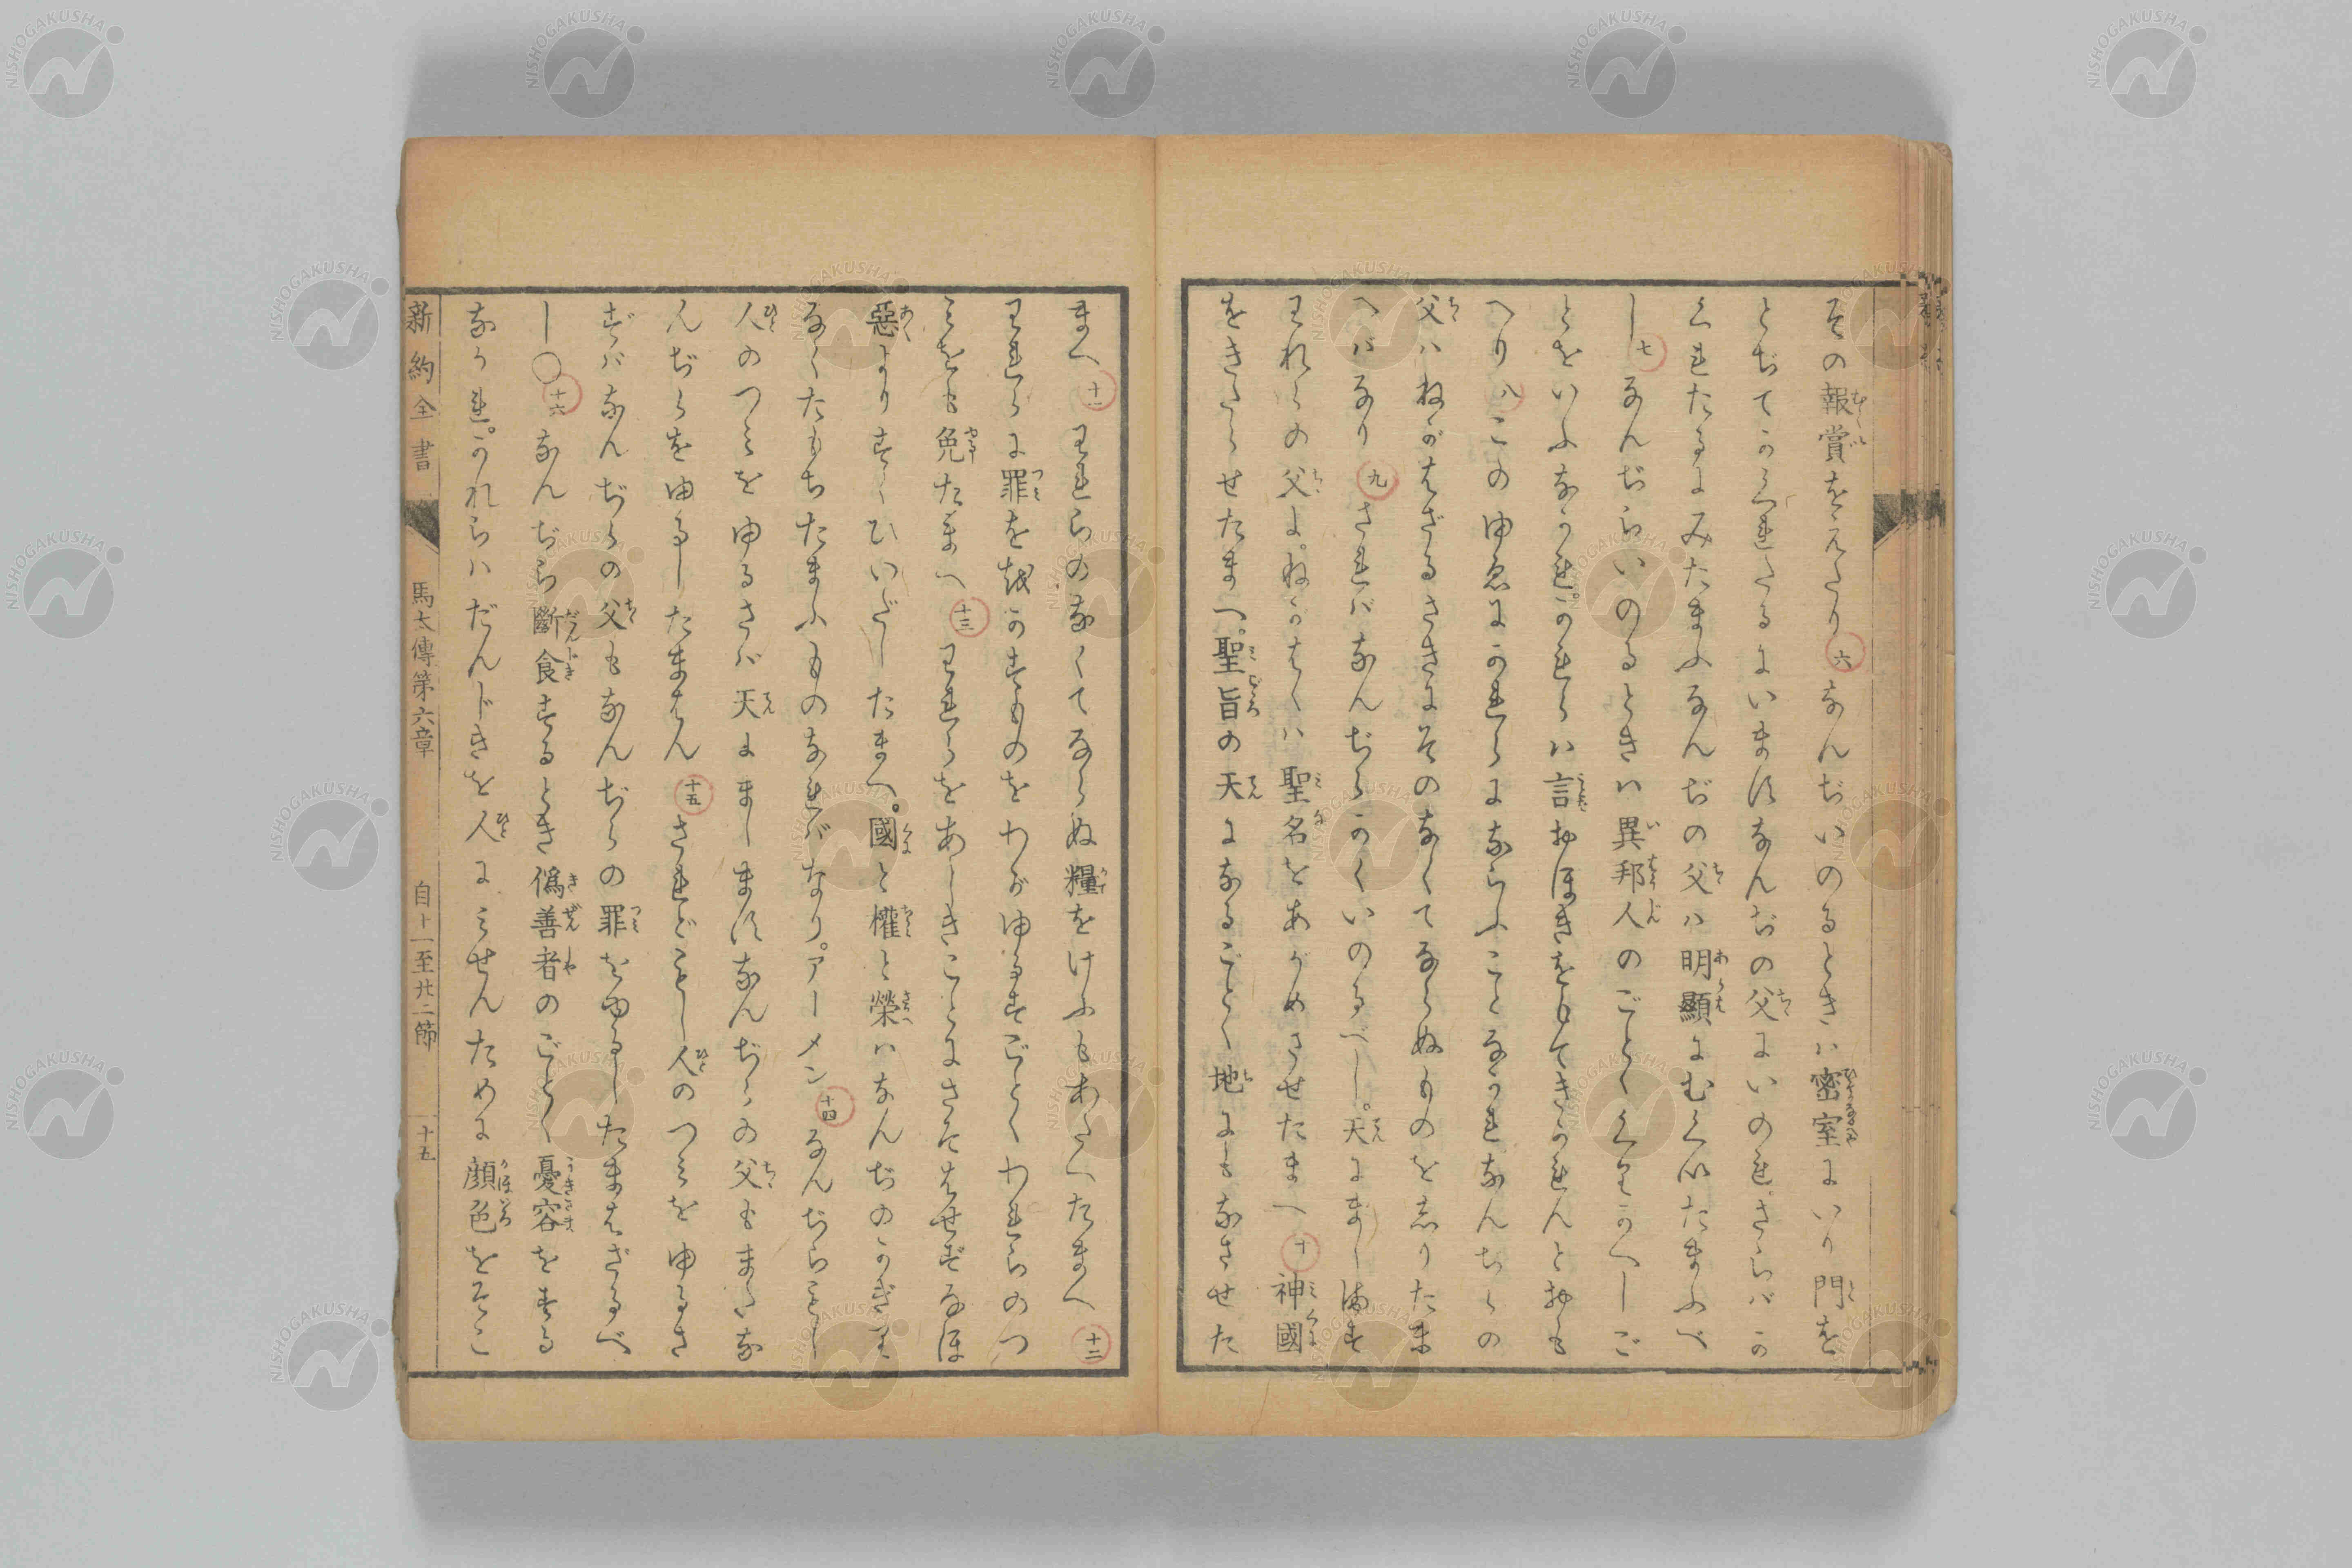 その報賞をえたり六なんぢいのるときハ密室にいり門を
とぢてかくれたるにいますなんぢの父にいのれさらバか
くれたるにみたまふなんぢの父ハ明顯にむくいたまふべ
し七なんぢらいのるときハ異邦人のごとくくりかへしご
とをいふなかれ。かれらハ言おほきをもてきかれんとおも
へり八このゆゑにかれらにならふことなかれなんぢらの
父ハねがはざるさきにそのなくてならぬものをしりたま
へバなり九さればなんぢらかくいのるべし。天にまします
われらの父よ。ねがはくハ聖名をあがめさせたまへ十神國
をきたらせたまへ。聖旨の天になるごとく地にもなさせた
まへ十一われらのなくてならぬ糧をけふもあたへたまへ十二
われらに罪を越かすものをわがゆるすごとくわれらのつ
みをも免たまへ十三われらをあしきことにさそはせずなほ
惡よりすくひいだしたまへ。國と權と榮ハなんぢのかぎり
なくたもちたまふものなれバなり。アーメン十四なんぢらもし
人のつみをゆるさバ天にましますなんぢらの父もまたな
んぢらをゆるしたまはん十五されどもし人のつみをゆるさ
ずバなんぢらの父もなんぢらの罪をゆるしたまはざるべ
し〇十六なんぢら斷食するとき僞善者のごとく憂容をする
なかれ。かれらハだんじきを人にみせんために顔色をそこ
新約全書 馬太傳第六章 自十一至廿二節 十五
NISHOGAKUSHA